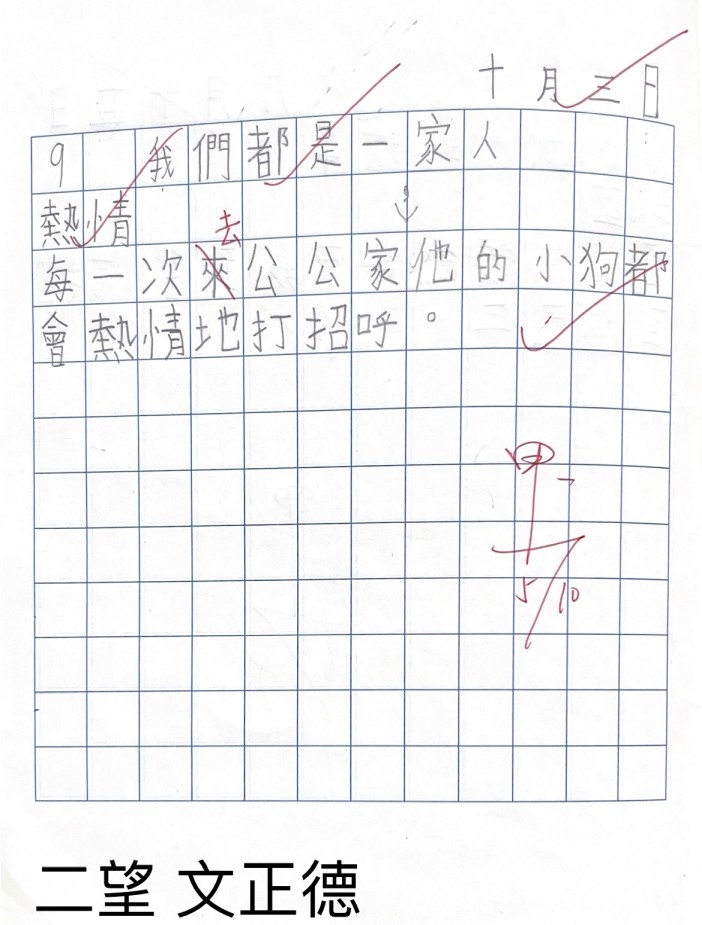 十月三日
9 我們都是一家人
熱情
去
每一次來公公家他的小狗都
會熱情地打招呼。
甲-
5/10
二望 文正德